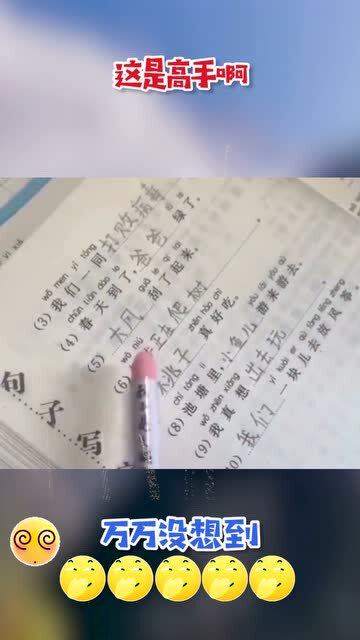 这是高手啊
wǒ men yì tóng
(3) 我们一同打败病毒
chūn tiān dào le
(4) 春天到了,爸爸绿了。
(5) 大风刮了起来。
(6) 爬树
桃子真好吃。
chí táng lǐ
(8) 池塘里小鱼儿游来游去。
wǒ zhēn xiǎng
(9) 我真想出去玩
我们一块儿去放风筝。
句子写
万万没想到